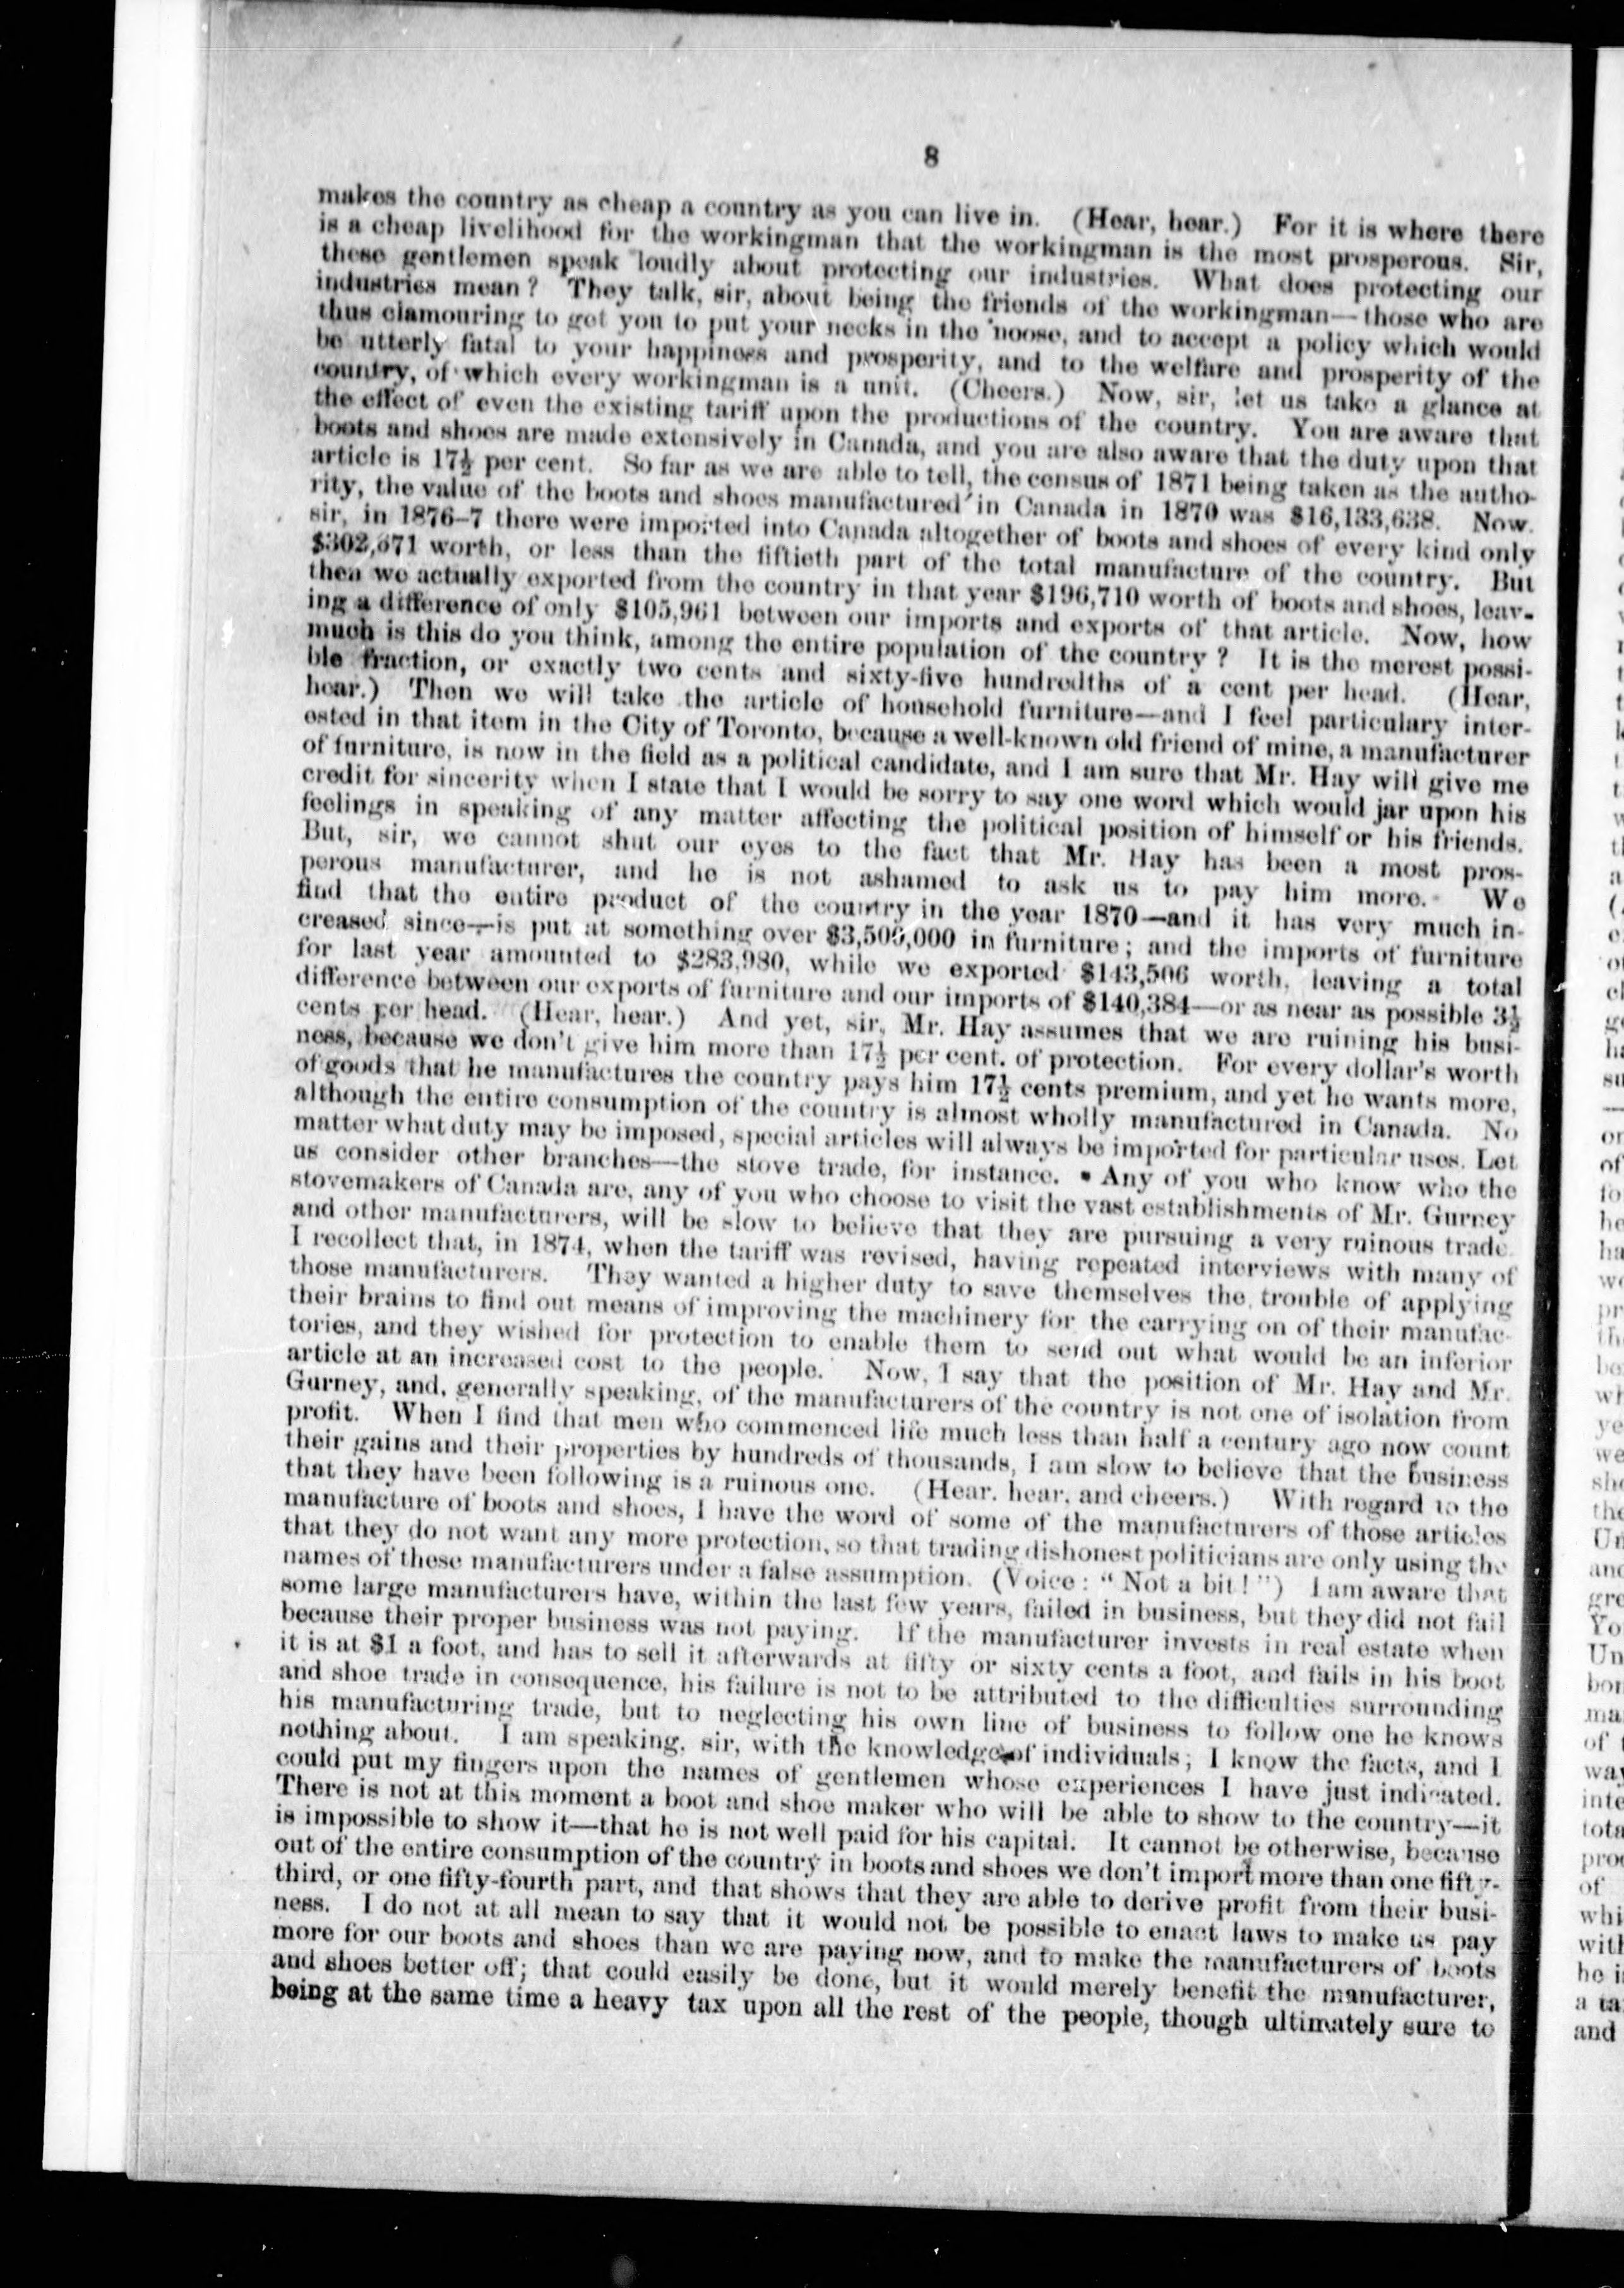 8
makes the country as cheap a country as you can live in. (Hear, hear.) For it is where there
is a cheap livelihood for the workingman that the workingman is the most prosperous. Sir,
these gentlemen speak loudly about protecting our industries. What does protecting our
industries mean? They talk, sir, about being the friends of the workingman—those who are
thus clamouring to get you to put your necks in the noose, and to accept a policy which would
be utterly fatal to your happiness and prosperity, and to the welfare and prosperity of the
country, of which every workingman is a unit. (Cheers.) Now, sir, let us take a glance at
the effect of even the existing tariff upon the productions of the country. You are aware that
boots and shoes are made extensively in Canada, and you are also aware that the duty upon that
article is 17½ per cent. So far as we are able to tell, the census of 1871 being taken as the autho-
rity, the value of the boots and shoes manufactured in Canada in 1870 was $16,133,638. Now.
sir, in 1876-7 there were imported into Canada altogether of boots and shoes of every kind only
$302,671 worth, or less than the fiftieth part of the total manufacture of the country. But
then we actually exported from the country in that year $196,710 worth of boots and shoes, leav-
ing a difference of only $105,961 between our imports and exports of that article. Now, how
much is this do you think, among the entire population of the country? It is the merest possi-
ble fraction, or exactly two cents and sixty-five hundredths of a cent per head. (Hear,
hear.) Then we will take the article of household furniture—and I feel particulary inter-
ested in that item in the City of Toronto, because a well-known old friend of mine, a manufacturer
of furniture, is now in the field as a political candidate, and I am sure that Mr. Hay will give me
credit for sincerity when I state that I would be sorry to say one word which would jar upon his
feelings in speaking of any matter affecting the political position of himself or his friends.
But, sir, we cannot shut our eyes to the fact that Mr. Hay has been a most pros-
perous manufacturer, and he is not ashamed to ask us to pay him more. We
find that the entire product of the country in the year 1870—and it has very much in-
creased since—is put at something over $3,500,000 in furniture; and the imports of furniture
for last year amounted to $283,980, while we exported $143,506 worth, leaving a total
difference between our exports of furniture and our imports of $140,384—or as near as possible 3½
cents per head. (Hear, hear.) And yet, sir, Mr. Hay assumes that we are ruining his busi-
ness, because we don't give him more than 17½ per cent. of protection. For every dollar's worth
of goods that he manufactures the country pays him 17½ cents premium, and yet he wants more,
although the entire consumption of the country is almost wholly manufactured in Canada. No
matter what duty may be imposed, special articles will always be imported for particular uses. Let
us consider other branches—the stove trade, for instance. Any of you who know who the
stovemakers of Canada are, any of you who choose to visit the vast establishments of Mr. Gurney
and other manufacturers, will be slow to believe that they are pursuing a very ruinous trade.
I recollect that, in 1874, when the tariff was revised, having repeated interviews with many of
those manufacturers. They wanted a higher duty to save themselves the trouble of applying
their brains to find out means of improving the machinery for the carrying on of their manufac-
tories, and they wished for protection to enable them to send out what would be an inferior
article at an increased cost to the people. Now, I say that the position of Mr. Hay and Mr.
Gurney, and, generally speaking, of the manufacturers of the country is not one of isolation from
profit. When I find that men who commenced life much less than half a century ago now count
their gains and their properties by hundreds of thousands, I am slow to believe that the business
that they have been following is a ruinous one. (Hear, hear, and cheers.) With regard to the
manufacture of boots and shoes, I have the word of some of the manufacturers of those articles
that they do not want any more protection, so that trading dishonest politicians are only using the
names of these manufacturers under a false assumption. (Voice: "Not a bit!") I am aware that
some large manufacturers have, within the last few years, failed in business, but they did not fail
because their proper business was not paying. If the manufacturer invests in real estate when
it is at $1 a foot, and has to sell it afterwards at fifty or sixty cents a foot, and fails in his boot
and shoe trade in consequence, his failure is not to be attributed to the difficulties surrounding
his manufacturing trade, but to neglecting his own line of business to follow one he knows
nothing about. I am speaking, sir, with the knowledge of individuals; I know the facts, and I
could put my fingers upon the names of gentlemen whose experiences I have just indicated.
There is not at this moment a boot and shoe maker who will be able to show to the country—it
is impossible to show it—that he is not well paid for his capital. It cannot be otherwise, because
out of the entire consumption of the country in boots and shoes we don't import more than one fifty-
third, or one fifty-fourth part, and that shows that they are able to derive profit from their busi-
ness. I do not at all mean to say that it would not be possible to enact laws to make us pay
more for our boots and shoes than we are paying now, and to make the manufacturers of boots
and shoes better off; that could easily be done, but it would merely benefit the manufacturer,
being at the same time a heavy tax upon all the rest of the people, though ultimately sure to